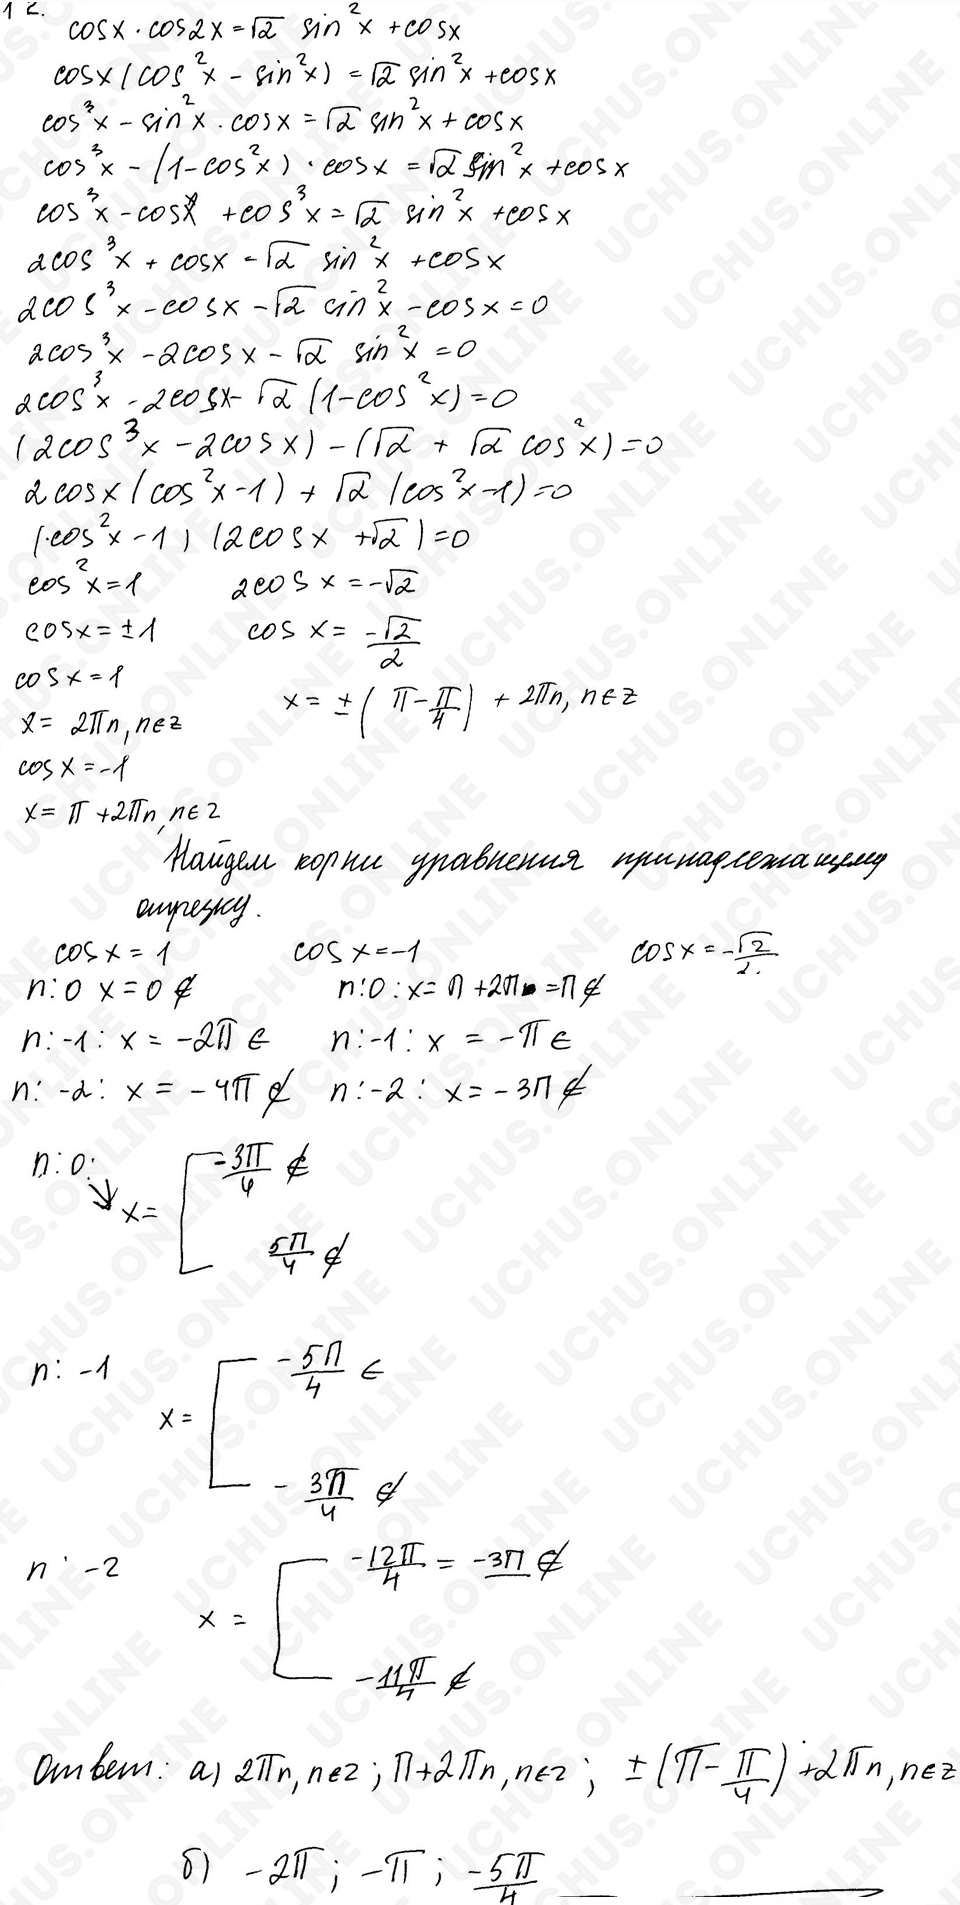 12.
cosx · cos2x = √2 sin²x + cosx
cosx (cos²x - sin²x) = √2 sin²x + cosx
cos³x - sin²x · cosx = √2 sin²x + cosx
cos³x - (1-cos²x) · cosx = √2 sin²x + cosx
cos³x - cosx + cos³x = √2 sin²x + cosx
2cos³x + cosx = √2 sin²x + cosx
2cos³x - cosx - √2 sin²x - cosx = 0
2cos³x - 2cosx - √2 sin²x = 0
2cos³x - 2cosx - √2 (1-cos²x) = 0
(2cos³x - 2cosx) - (√2 + √2 cos²x) = 0
2cosx (cos²x-1) + √2 (cos²x-1) = 0
(cos²x - 1) (2cosx + √2) = 0
cos²x = 1 2cosx = -√2
cosx = ±1 cosx = -√2/2
cosx = 1
x = ±(π - π/4) + 2πn, n∈z
x = 2πn, n∈z
cosx = -1
x = π + 2πn, n∈z
Найдем корни уравнения принадлежащему
отрезку.
cosx = 1 cosx = -1 cosx = -√2/2
n: 0 x = 0 ∉ n: 0 : x = π + 2πn = π ∉
n: -1 : x = -2π ∈ n: -1 : x = -π ∈
n: -2 : x = -4π ∉ n: -2 : x = -3π ∉
n: 0: x = [ -3π/4 ∉
5π/4 ∉
n: -1 x = [ -5π/4 ∈
-3π/4 ∉
n: -2 x = [ -12π/4 = -3π ∉
-11π/4 ∉
Ответ: а) 2πn, n∈z ; π+2πn, n∈z ; ±(π - π/4) + 2πn, n∈z
б) -2π ; -π ; -5π/4
UCHUS.ONLINE